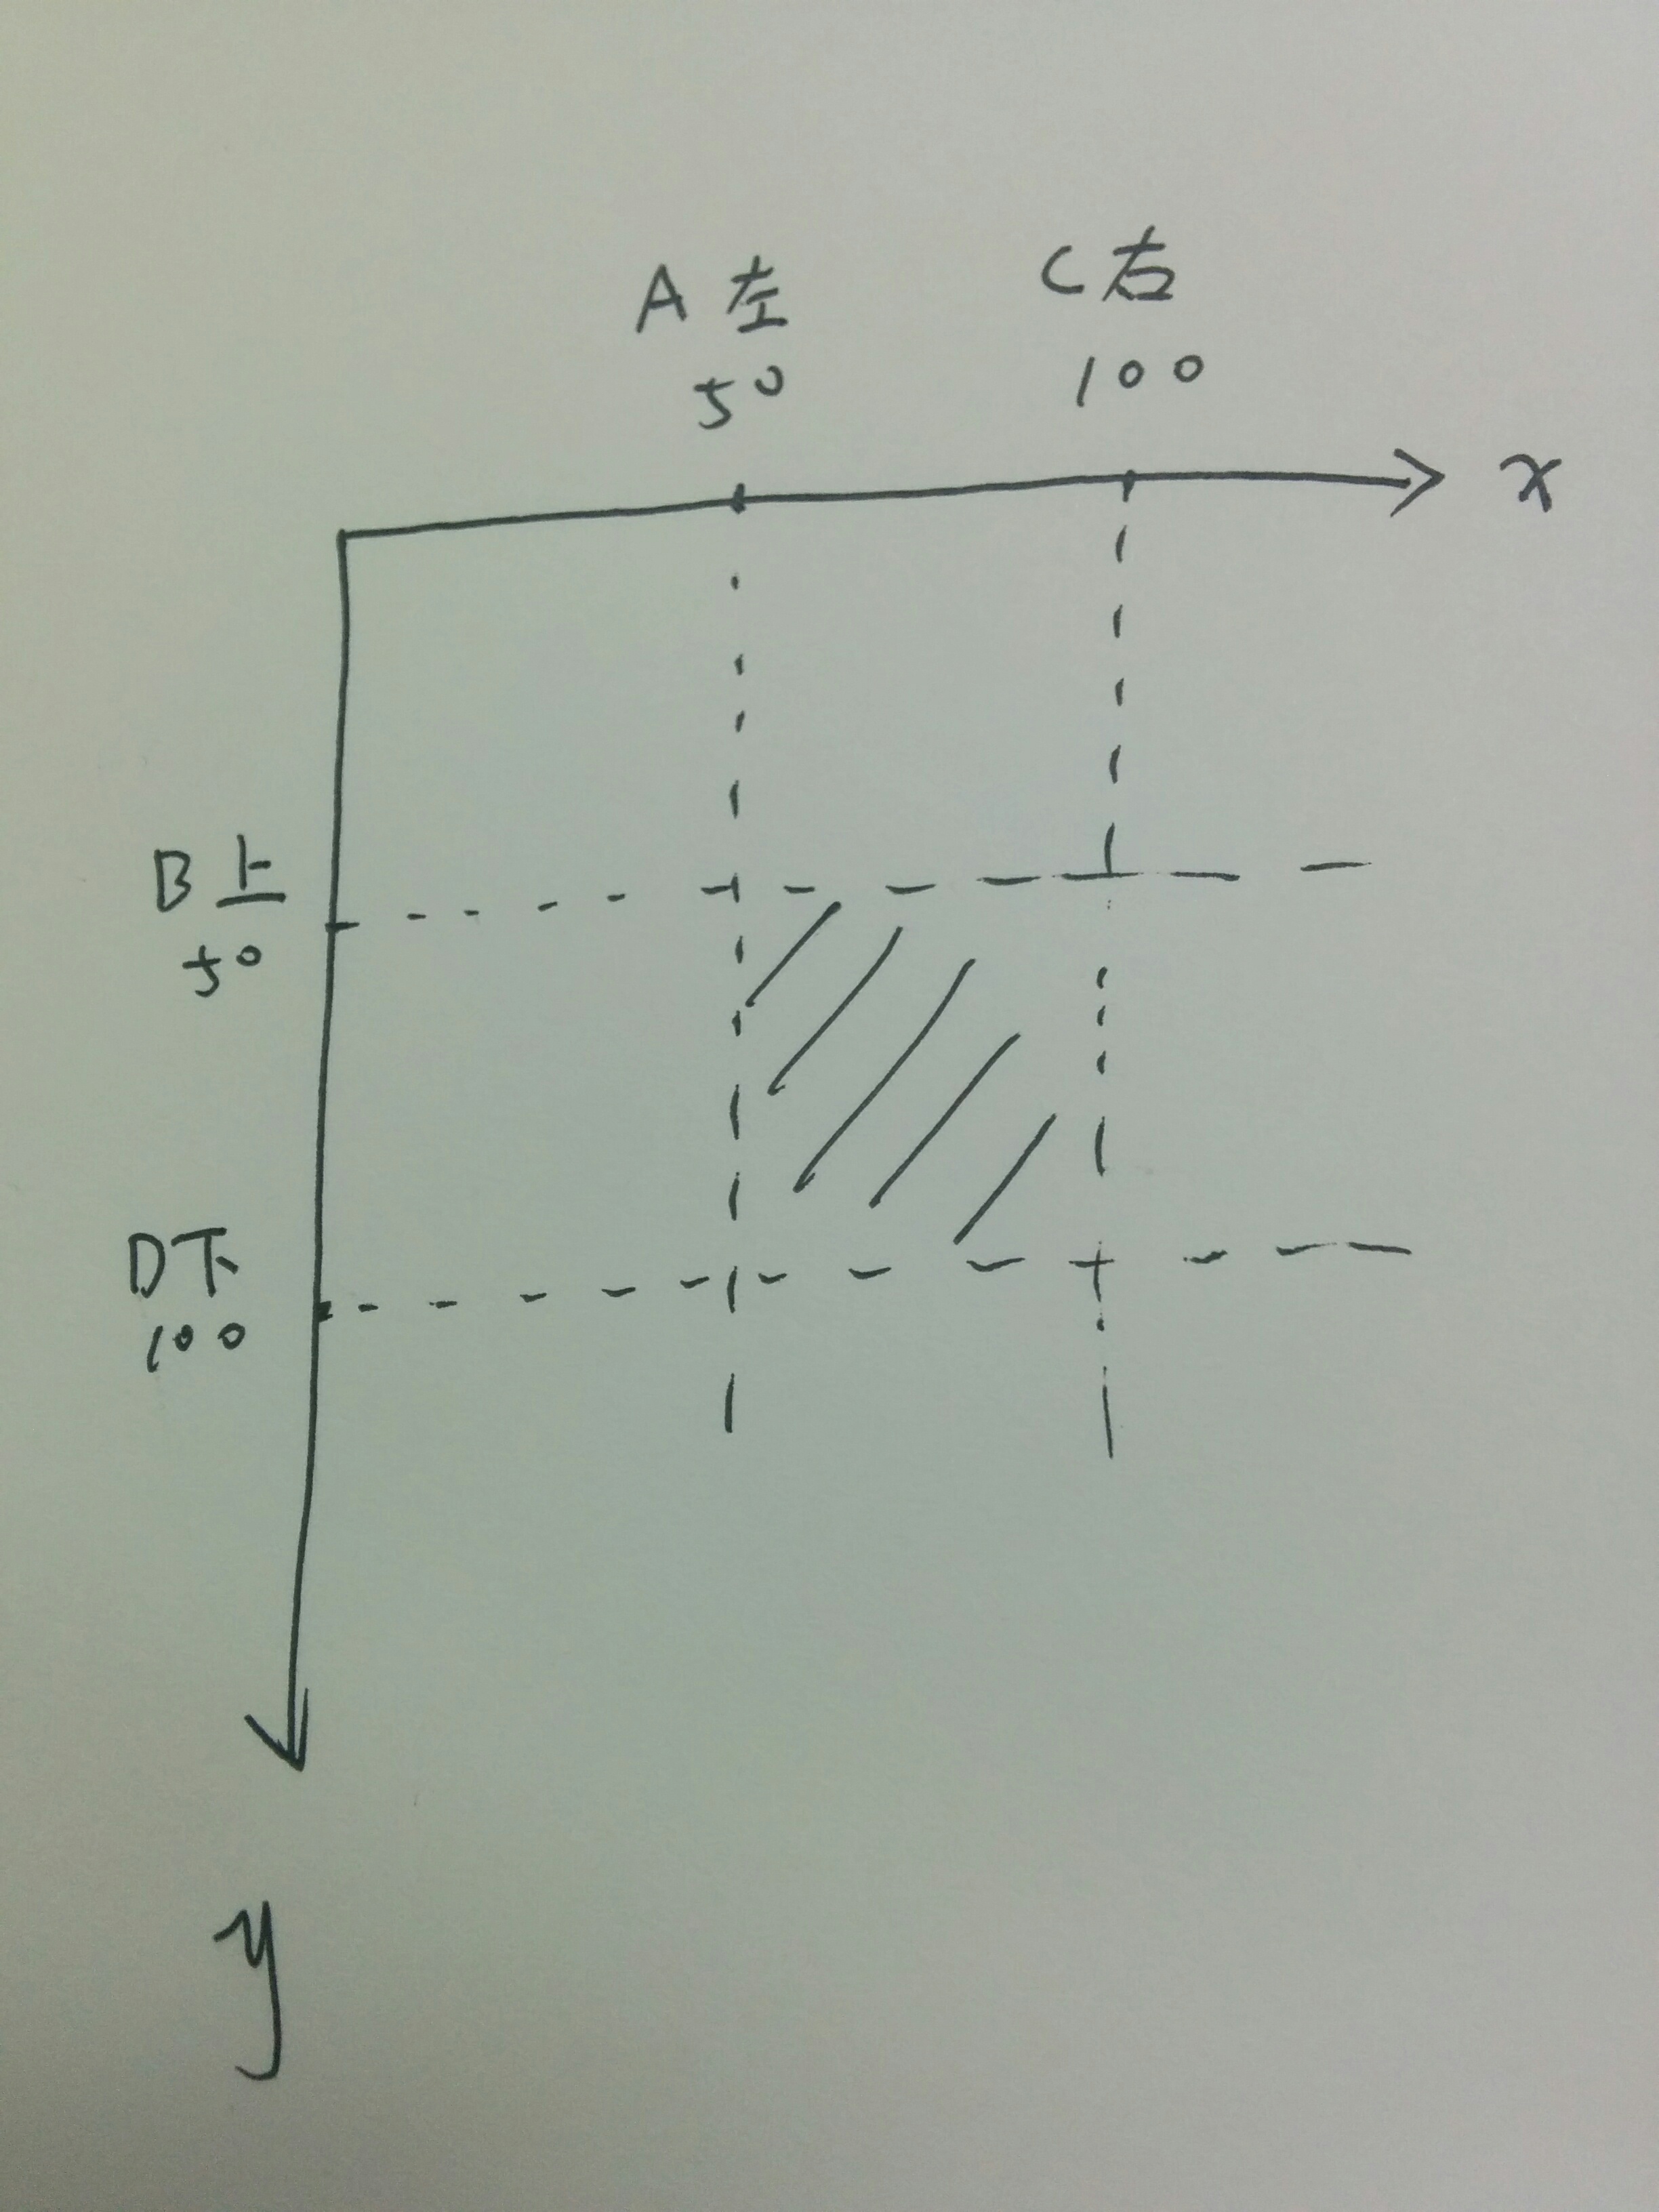 A 左
50
C 右
100
x
B 上
50
D 下
100
y